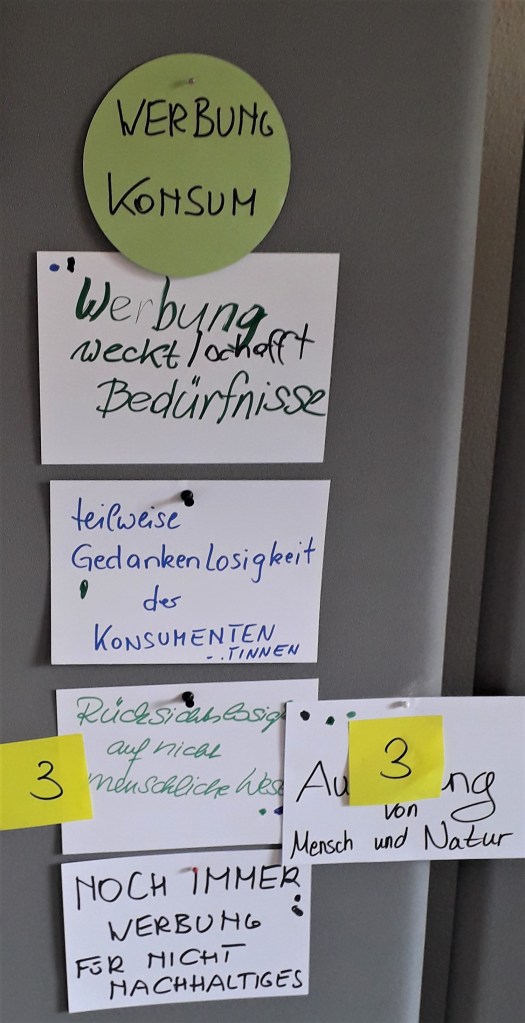 WERBUNG
KONSUM
Werbung
weckt/schafft
Bedürfnisse
teilweise
Gedankenlosigkeit
der
KONSUMENTEN
..TINNEN
Rücksichtslosig
auf nicht
menschliche Wes
3
3
Au ng
von
Mensch und Natur
NOCH IMMER
WERBUNG
FÜR NICHT
NACHHALTIGES